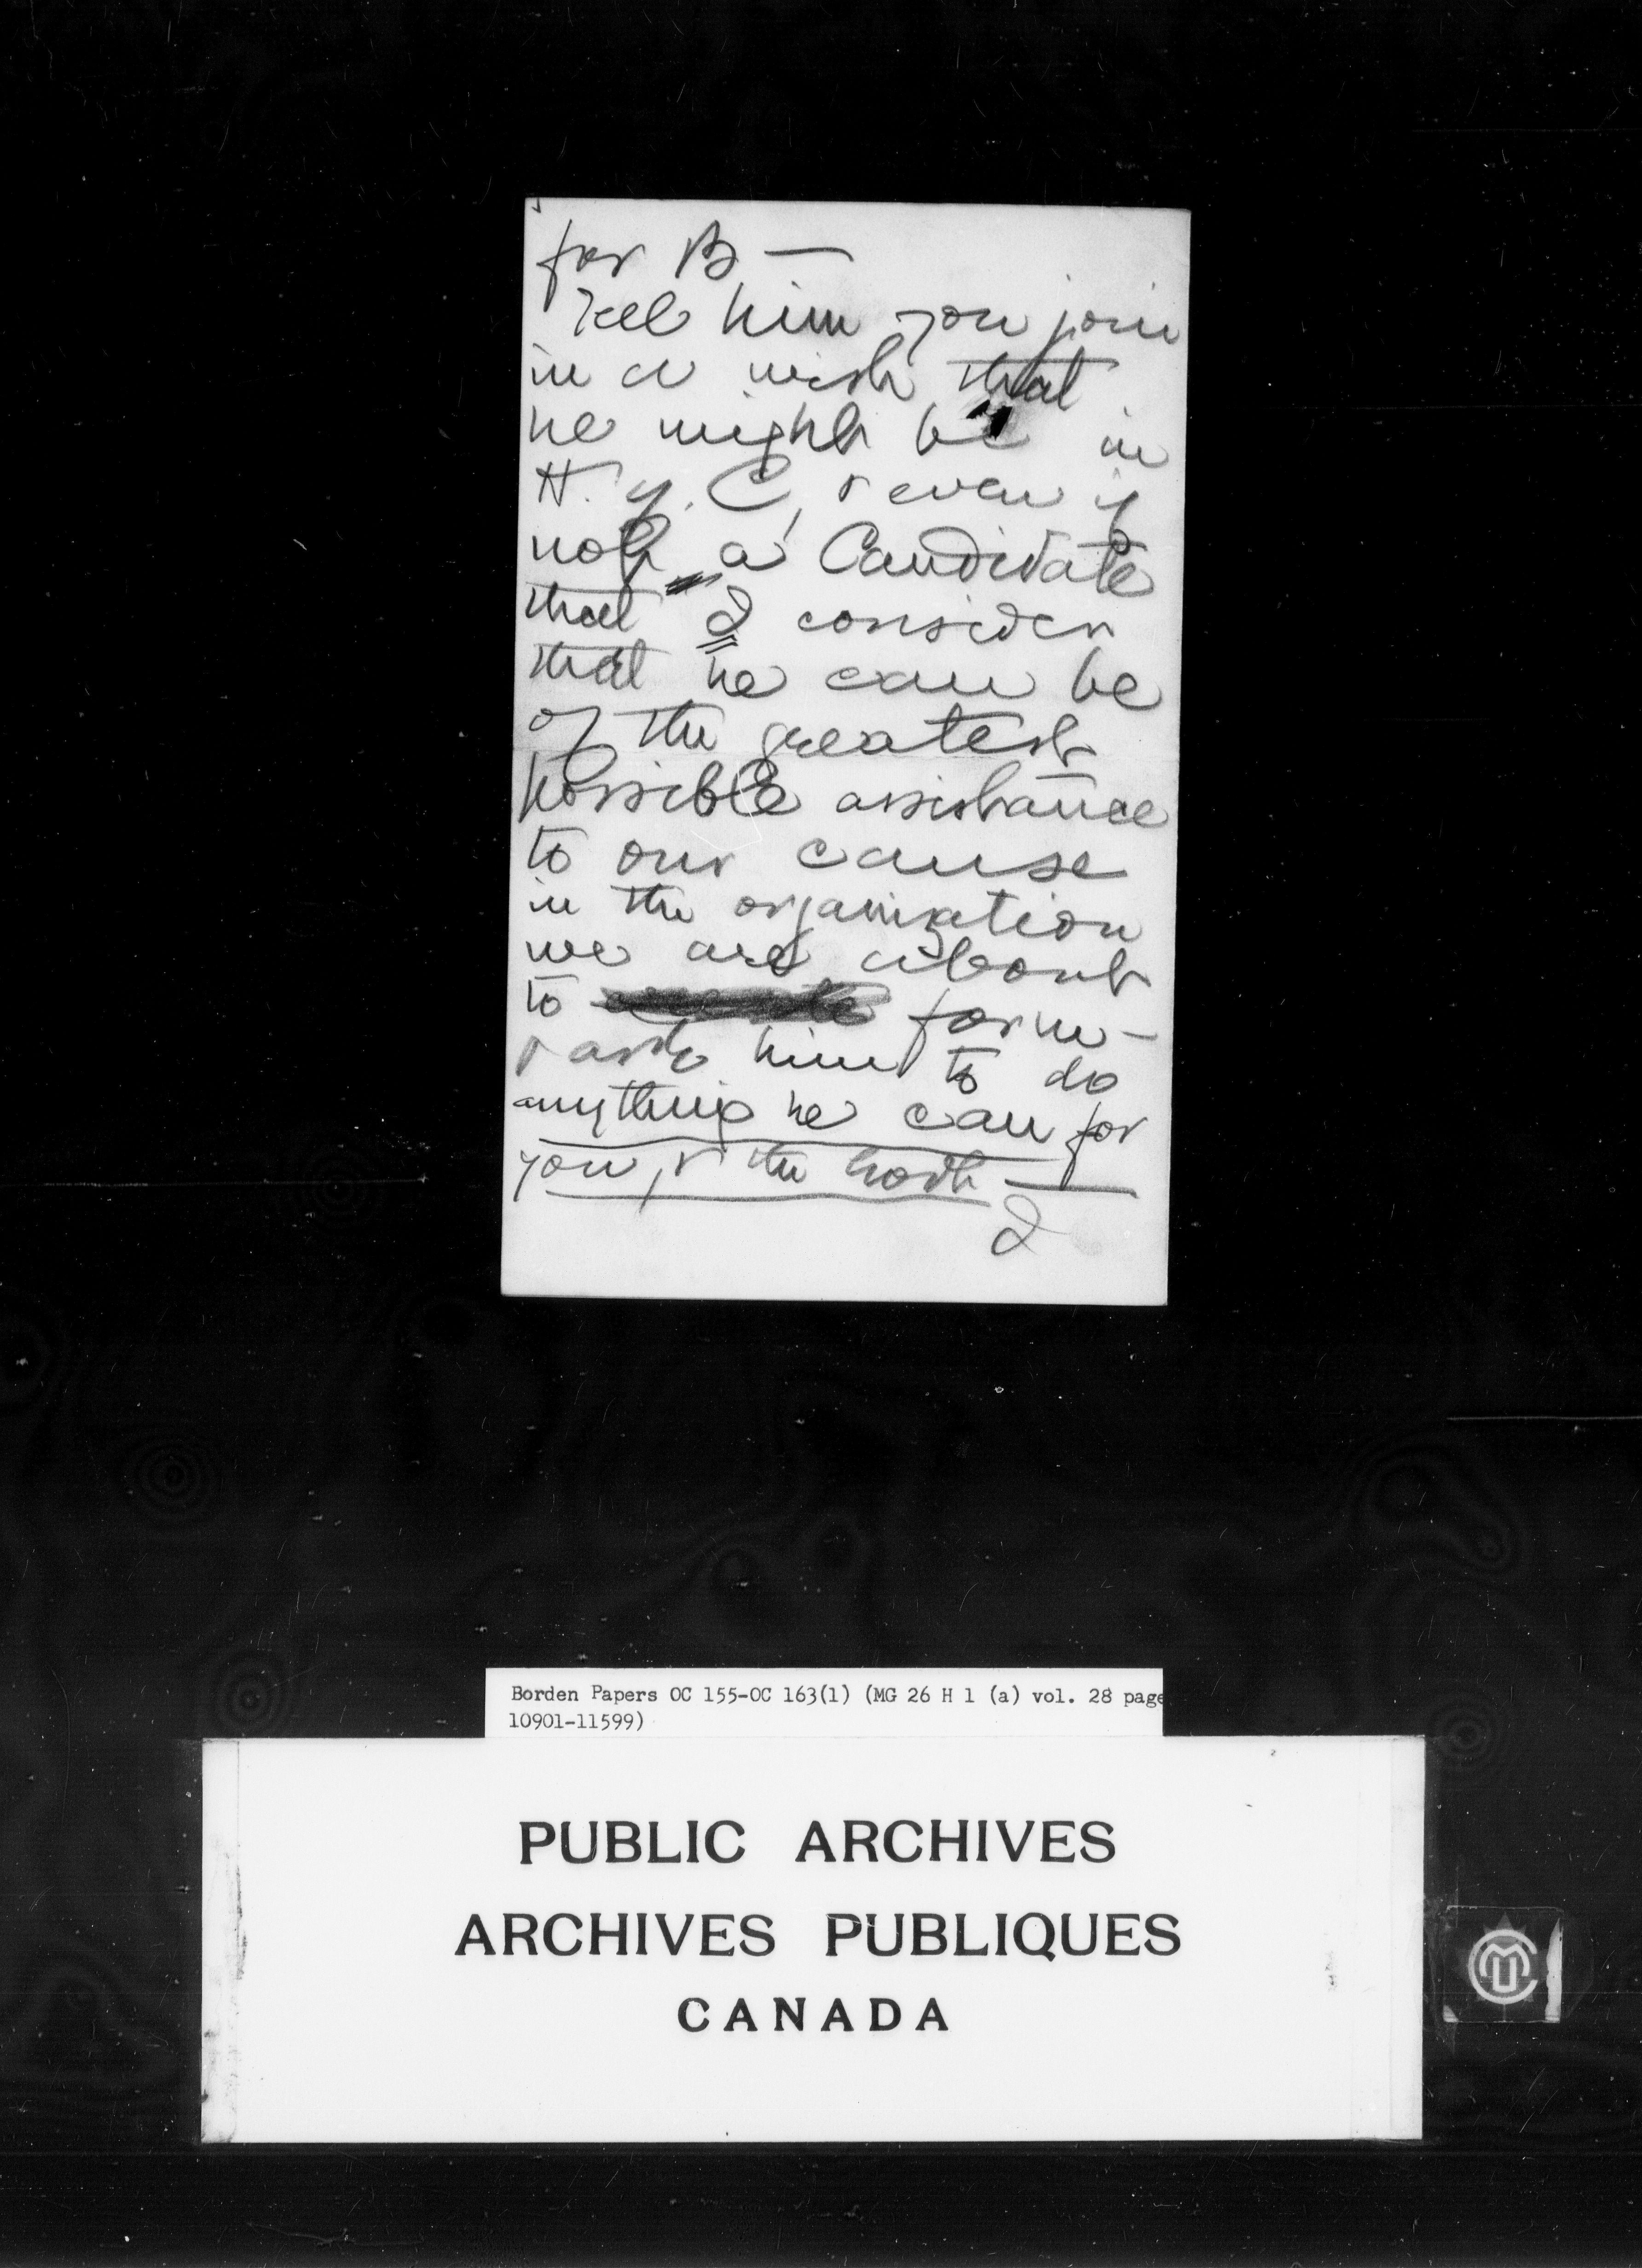 for B —
Tell him you join
in a wish that
he might be in
H. of C, & even if
not a Candidate
that I consider
that he can be
of the greatest
possible assistance
to our cause
in the organization
we are about
to form —
& ask him to do
anything he can for
you, & the
Borden Papers OC 155-OC 163(1) (MG 26 H 1 (a) vol. 28 page
10901-11599)
PUBLIC ARCHIVES
ARCHIVES PUBLIQUES
CANADA